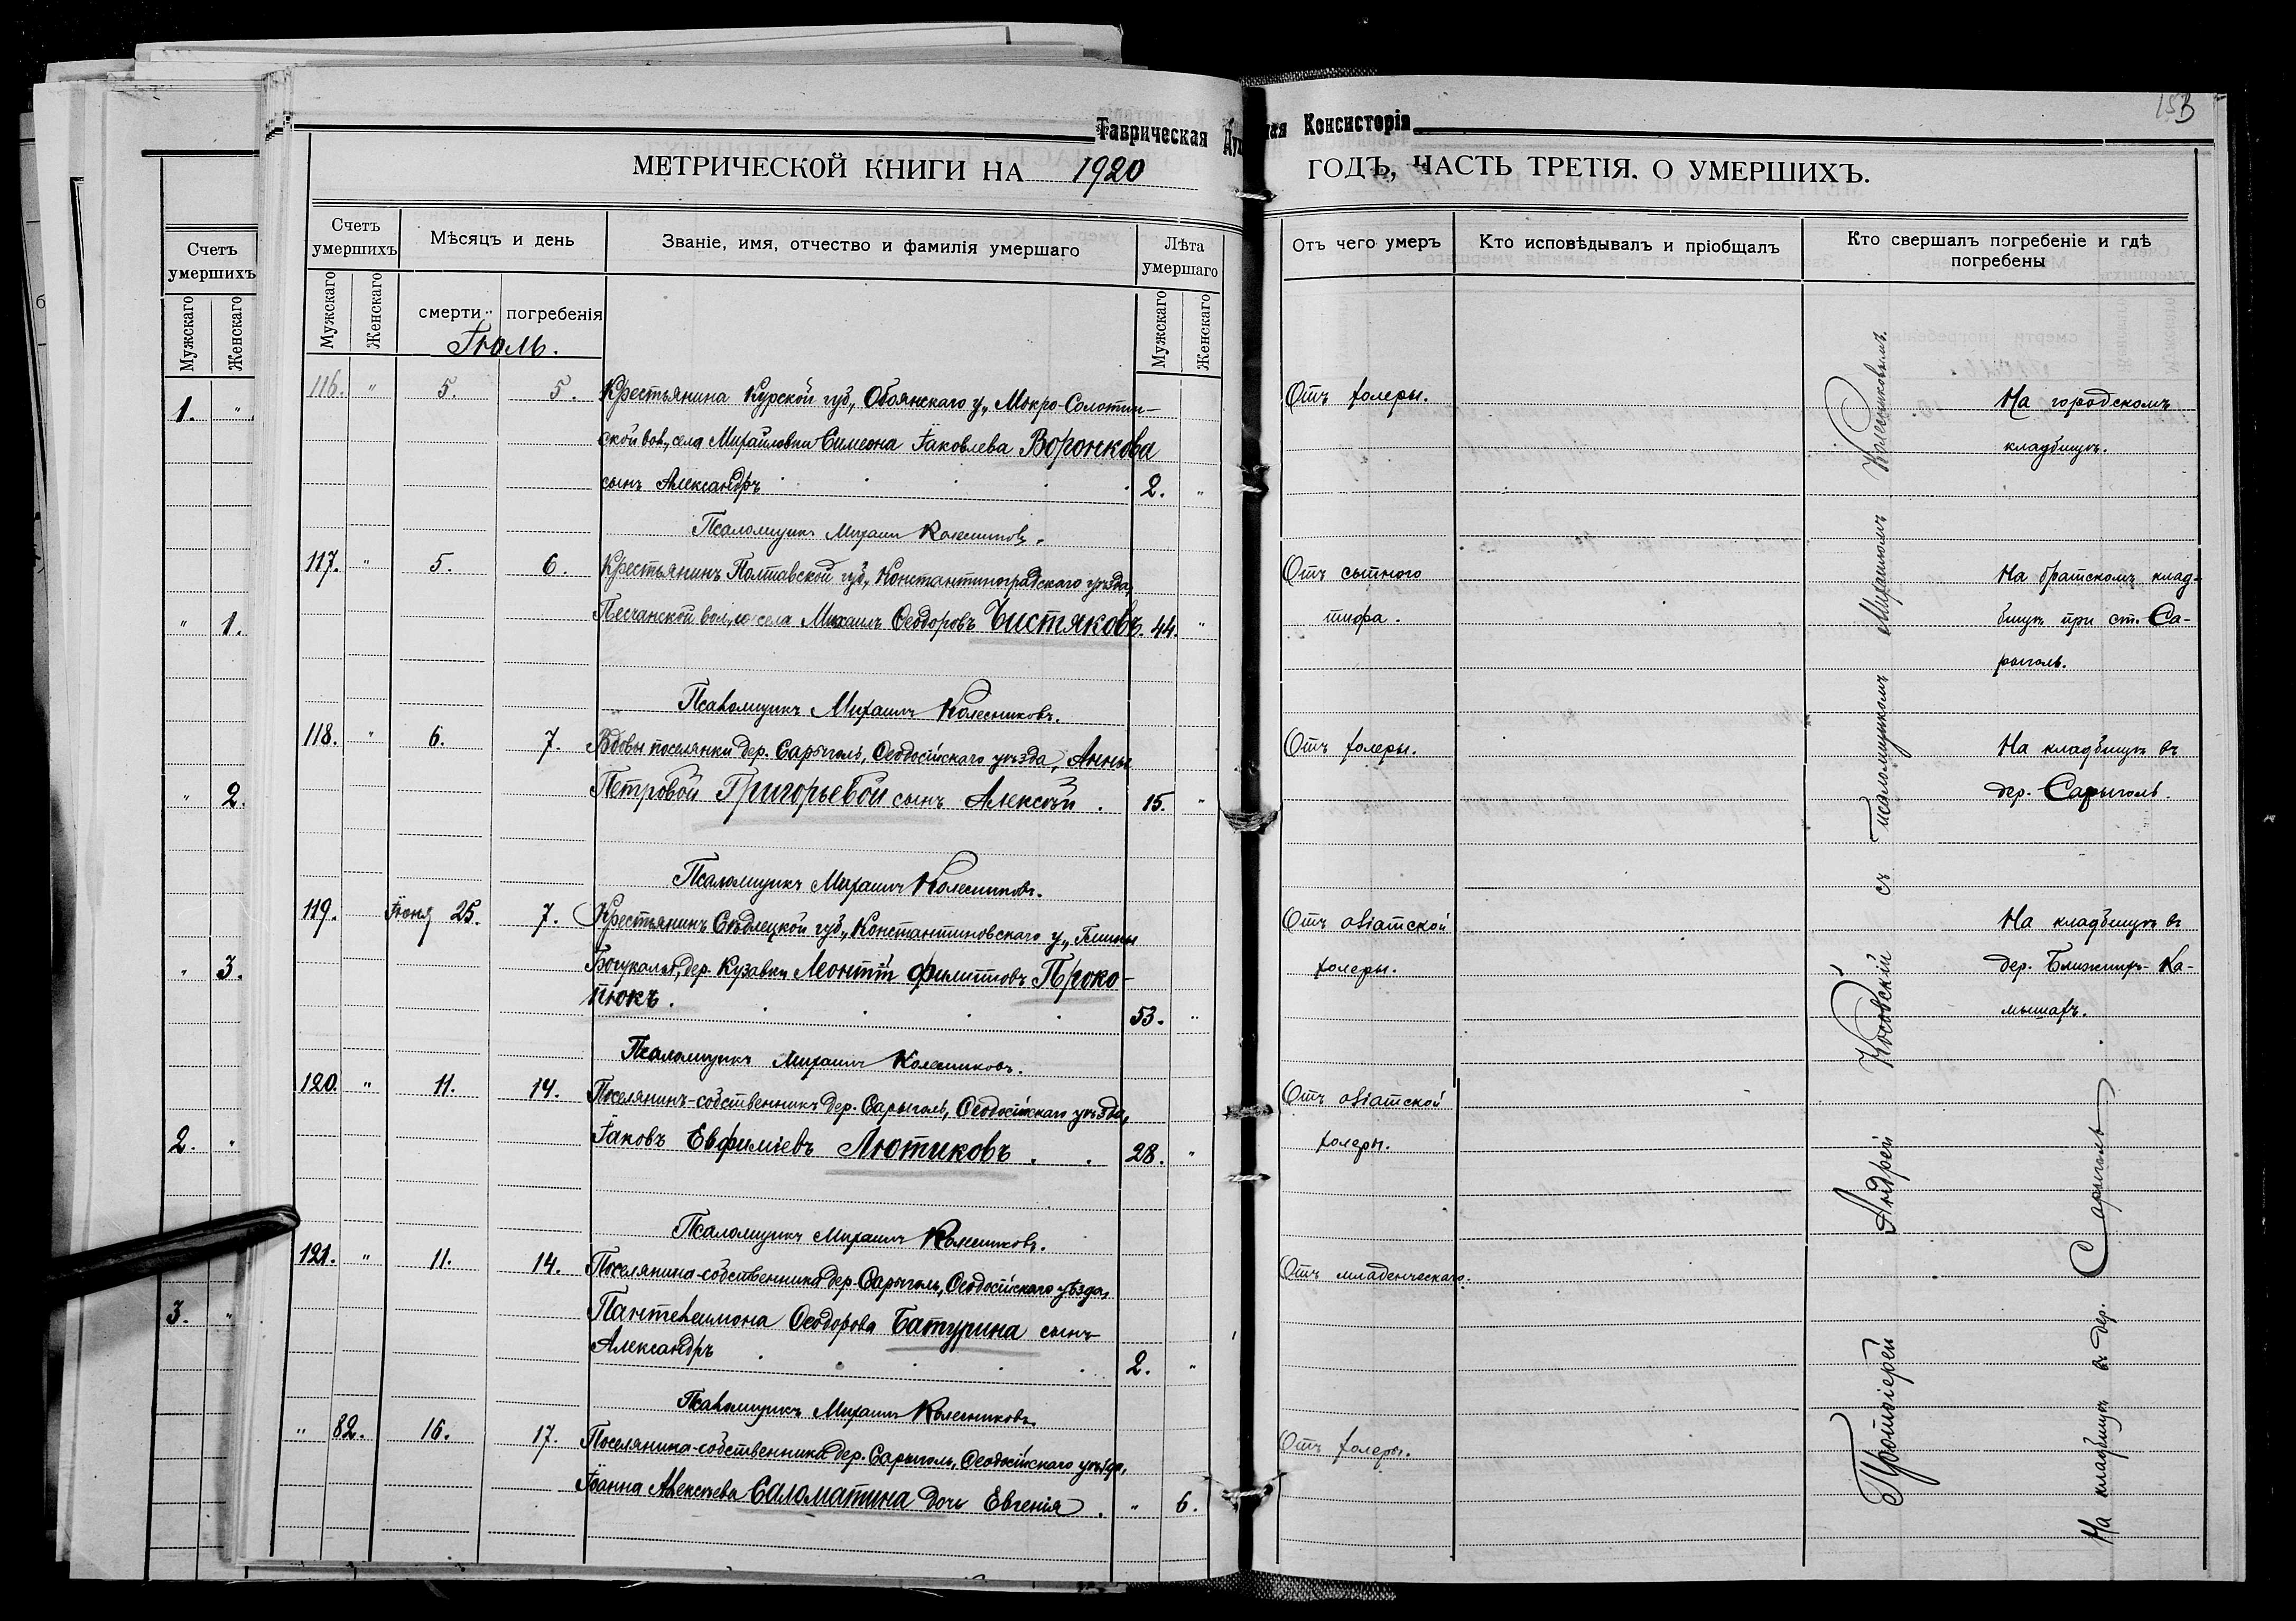 153
Таврическая Духовная Консисторія
МЕТРИЧЕСКОЙ КНИГИ НА 1920 ГОДЪ, ЧАСТЬ ТРЕТІЯ. О УМЕРШИХЪ.
Счетъ умершихъ
Мужскаго
Женскаго
1. "
" 1.
" 2.
" 3.
2. "
3. "
Счетъ умершихъ
Мѣсяцъ и день
Званіе, имя, отчество и фамилія умершаго
Лѣта умершаго
Отъ чего умеръ
Кто исповѣдывалъ и пріобщалъ
Кто свершалъ погребеніе и гдѣ погребены
Мужскаго
Женскаго
смерти
погребенія
Мужскаго
Женскаго
Іюль.
116. " 5. 5. Крестьянина Курской губ., Обоянскаго у., Мокро-Солотин-
ской вол., села Михайловки Симеона Іаковлева Воронкова
сынъ Александръ 2. "
Отъ холеры.
На городскомъ
кладбищѣ.
Псаломщикъ Михаилъ Колесниковъ.
117. " 5. 6. Крестьянинъ Полтавской губ., Константиноградскаго уѣзда,
Песчанской вол., села Михаилъ Ѳеодоровъ Чистяковъ. 44. "
Отъ сыпного
тифа.
На братскомъ клад-
бищѣ при ст. Са-
рыголь.
Псаломщикъ Михаилъ Колесниковъ.
118. " 6. 7. Вдовы поселянки дер. Сарыголь, Ѳеодосійскаго уѣзда, Анны
Петровой Григорьевой сынъ Алексѣй. 15. "
Отъ холеры.
На кладбищѣ въ
дер. Сарыголь.
Псаломщикъ Михаилъ Колесниковъ.
119. Іюня 25. 7. Крестьянинъ Сѣдлецкой губ., Константиновскаго у., Гмины
Богукалы, дер. Кузавки Леонтій Филипповъ Проко-
пюкъ. 53. "
Отъ азіатской
холеры.
На кладбищѣ въ
дер. Ближнихъ-Ка-
мышахъ.
Псаломщикъ Михаилъ Колесниковъ.
120. " 11. 14. Поселянинъ-собственникъ дер. Сарыголь, Ѳеодосійскаго уѣзда,
Іаковъ Евфиміевъ Лютиковъ. 28. "
Отъ азіатской
холеры.
Псаломщикъ Михаилъ Колесниковъ.
121. " 11. 14. Поселянина-собственника дер. Сарыголь, Ѳеодосійскаго уѣзда,
Пантелеимона Ѳеодорова Батурина сынъ
Александръ 2. "
Отъ младенческаго.
Псаломщикъ Михаилъ Колесниковъ.
" 82. 16. 17. Поселянина-собственника дер. Сарыголь, Ѳеодосійскаго уѣзда,
Іоанна Алексѣева Саломатина дочь Евгенія. " 6.
Отъ холеры.
Протоіерей Андрей Косовскій съ псаломщикомъ Михаиломъ Колесниковымъ.
На кладбищѣ въ дер. Сарыголь